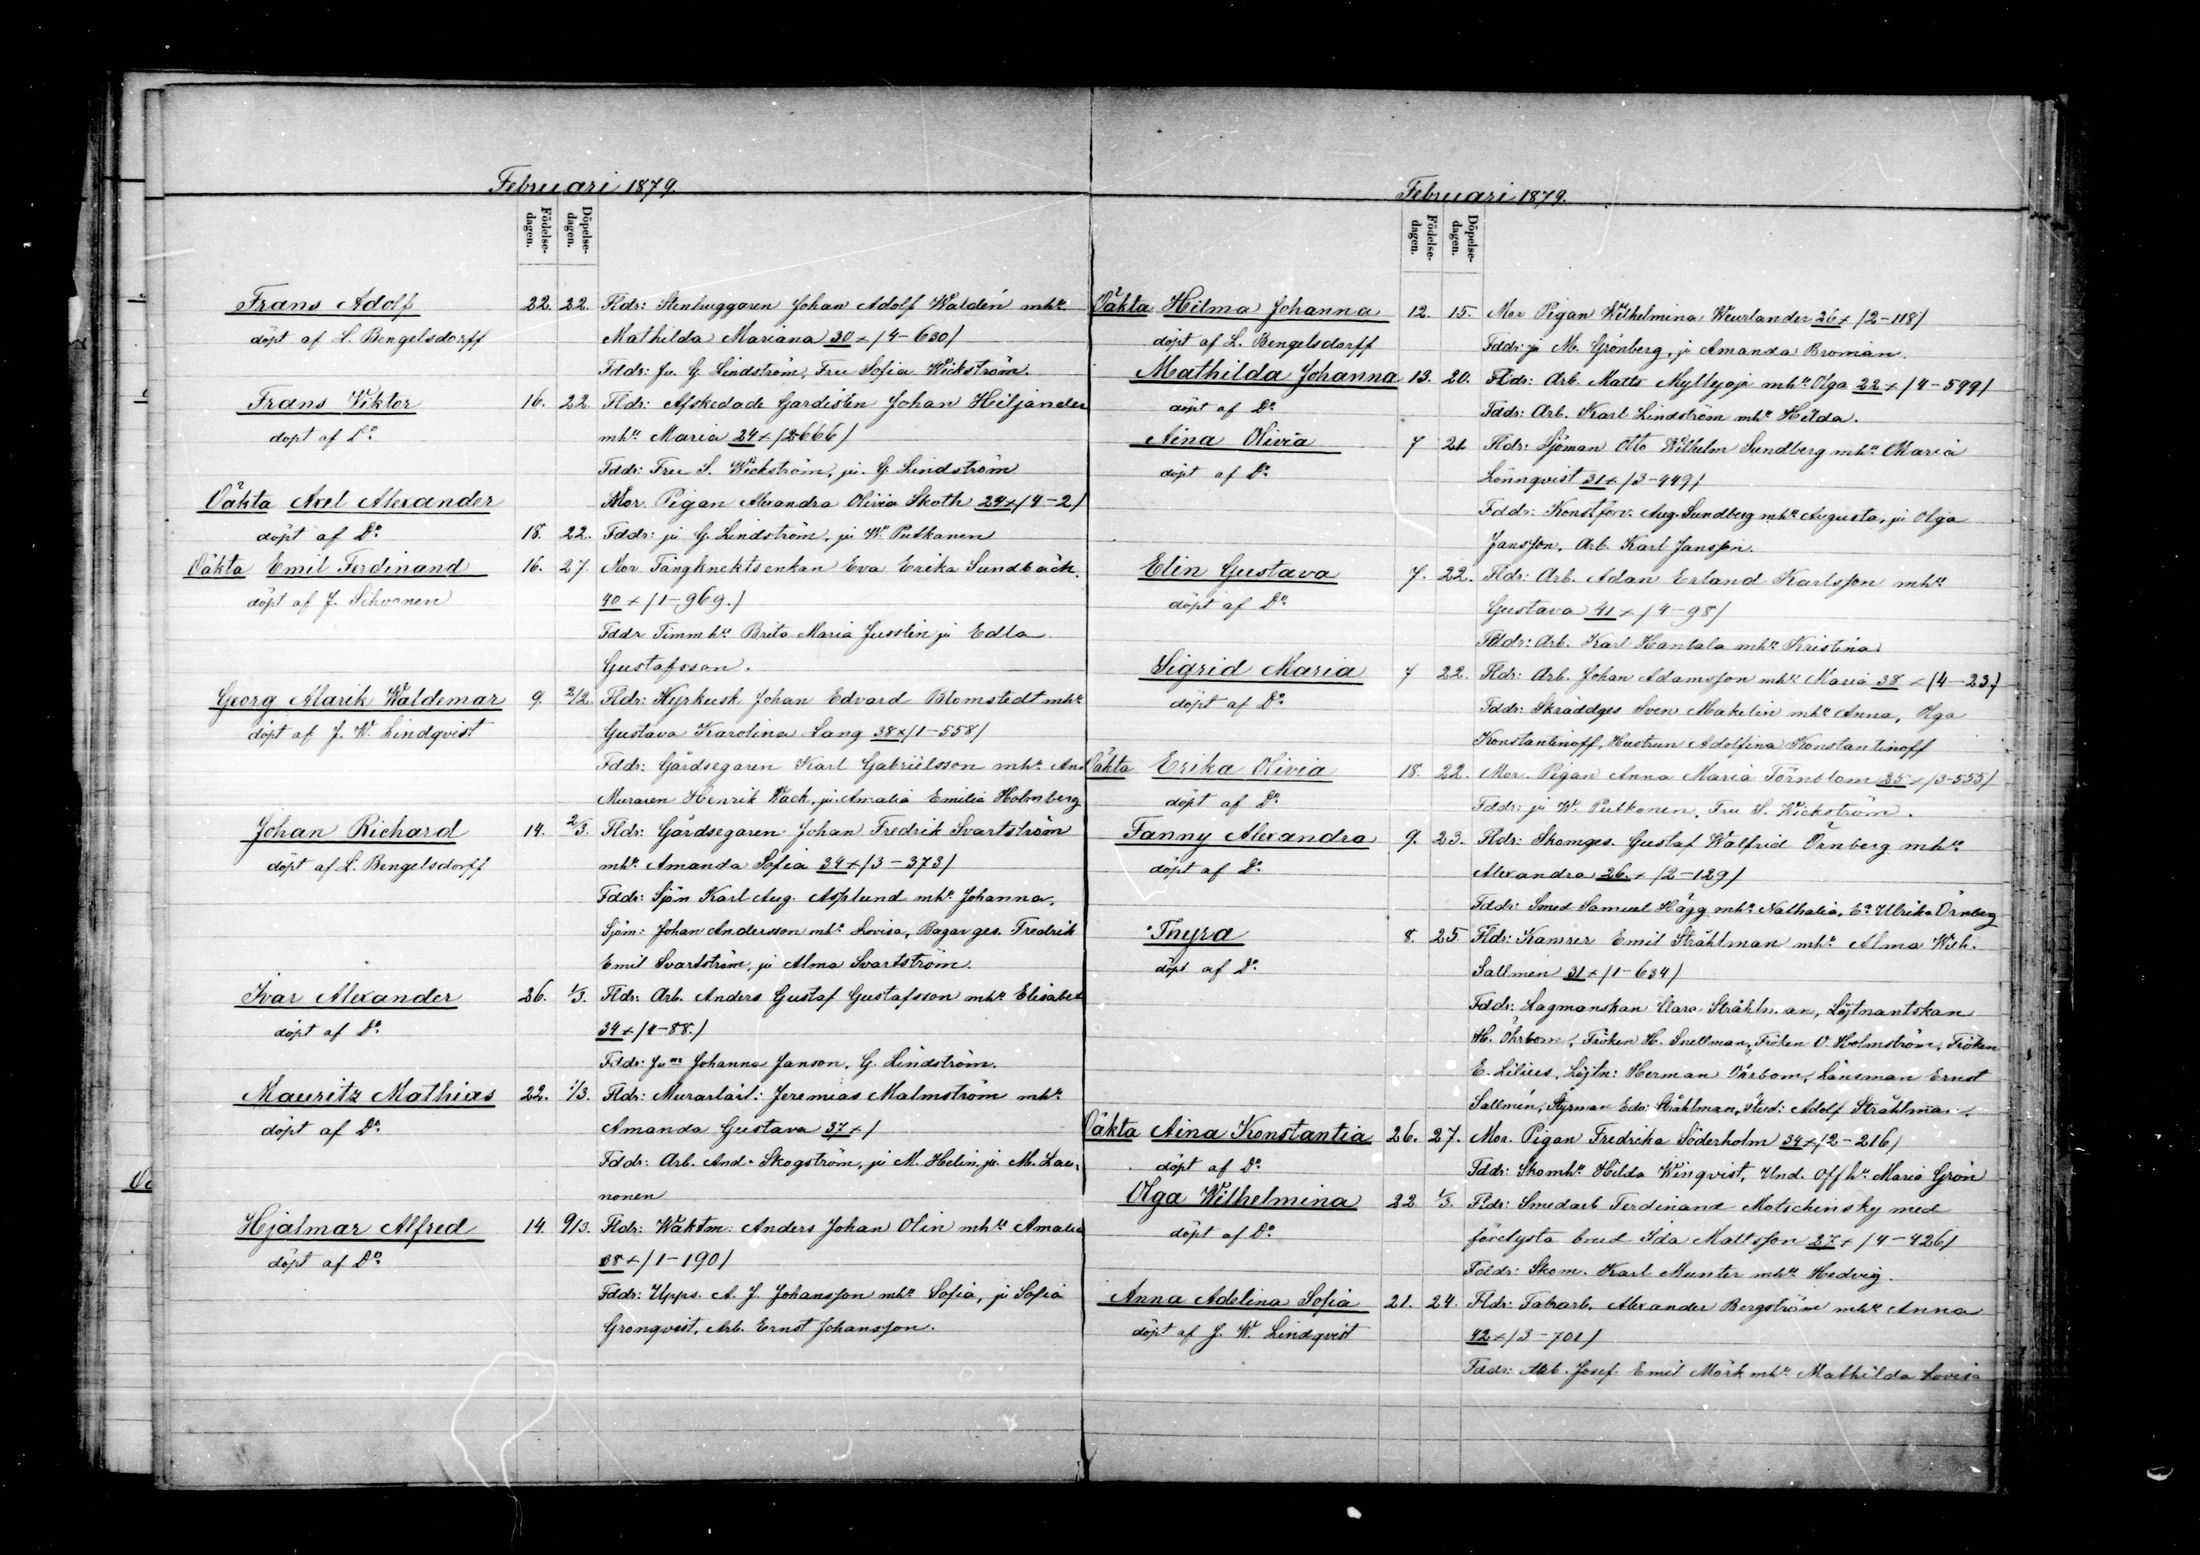 Februari 1879.
Födelse-
dagen.
Döpelse-
dagen.
Frans Adolf 22. 22. Fldr: Stenhuggaren Johan Adolf Waldén mhu
döpt af L. Bengelsdorff Mathilda Mariana 30 x /4-630/
Fddr: Ju. G. Lindström, Fru Sofia Wickström.
Frans Viktor 16. 22. Fldr: Afskedade Gardisten Johan Hiljander
döpt af Do mhu Maria 24 x /2-666/
Fddr: Fru S. Wickström, ju. G. Lindström
Oäkta Axel Alexander Mor Pigan Alexandra Olivia Skoth 24 x /4-2/
döpt af Do 18. 22. Fddr: ju G. Lindström, ju W. Putkonen
Oäkta Emil Ferdinand 16. 27. Mor Fångknektsenkan Eva Erika Sundbäck
döpt af J. Sihvonen 40 x /1-969./
Fddr Timmhu Brita Maria Jusslin ju Edla
Gustafsson.
Georg Alarik Waldemar 9. 2/2. Fldr: Hyrkusk Johan Edvard Blomstedt mhu
döpt af J. W. Lindqvist Gustava Karolina Lang 38 x /1-558/
Fddr: Gårdsegaren Karl Gabrielsson mhu
Muraren Henrik Wack, ju. Amalia Emilia Holmberg
Johan Richard 14. 2/3. Fldr: Gårdsegaren Johan Fredrik Svartström
döpt af L. Bengelsdorff mhu Amanda Sofia 34 x /3-373/
Fddr: Sjön Karl Aug. Asplund mhu Johanna,
Sjöm: Johan Andersson mhu Lovisa, Bagar ges. Fredrik
Emil Svartström, ju Alma Svartström.
Ivar Alexander 26. 1/3. Fldr: Arb. Anders Gustaf Gustafsson mhu Elisabet
döpt af Do 34 x /4-88./
Fddr: Johanna Janson, G. Lindström.
Mauritz Mathias 22. 1/3. Fldr: Murarlärl: Jeremias Malmström mhu
döpt af Do Amanda Gustava 37 x /
Fddr: Arb. And. Skogström, ju M. Helin, ju. M. Lau-
nonen
Hjalmar Alfred 14. 9/3. Fldr: Waktm: Anders Johan Olin mhu Amalia
döpt af Do 38 x /1-190/
Fddr: Upps. A. J. Johansson mhu Sofia, ju Sofia
Gronqvist, Arb. Ernst Johansson.
Februari 1879.
Födelse-
dagen.
Döpelse-
dagen.
Oäkta Hilma Johanna 12. 15. Mor Pigan Wilhelmina Weurlander 26 x /2-118/
döpt af L. Bengelsdorff Fddr: ju M. Grönberg, ju Amanda Broman.
Mathilda Johanna 13. 20. Fldr: Arb. Matts Myllyoja mhu Olga 22 x /4-599/
döpt af Do Fddr: Arb. Karl Lindström mhu Hilda.
Aina Olivia 7 21 Fldr: Sjöman Otto Wilhelm Sundberg mhu Maria
döpt af Do Lönnqvist 31 x /3-449/
Fddr: Konstförv. Aug. Sundberg mhu Augusta, ju Olga
Jansson, Arb. Karl Jansson.
Elin Gustava 7. 22. Fldr: Arb. Adan Erland Karlsson mhu
döpt af Do Gustava 41 x /4-98/
Fddr: Arb. Karl Hantala mhu Kristina
Sigrid Maria 7 22. Fldr: Arb. Johan Adamsson mhu Maria 38 x /4-23./
döpt af Do Fddr: Skräddges Sven Makelin mhu Anna, Olga
Konstantinoff, Hustrun Adolfina Konstantinoff
Oäkta Erika Olivia 18. 22. Mor. Pigan Anna Maria Törnblom 35 x /3-555/
döpt af Do Fddr: ju W. Putkonen, Fru S. Wickström.
Fanny Alexandra 9. 23. Fldr: Skomges. Gustaf Walfrid Örnberg mhu
döpt af Do Alexandra 26. x /2-129/
Fddr: Smed Samuel Hägg mhu Nathalia, Ea Ulrika Örnberg
Thyra 8. 25 Fldr: Kamrer Emil Stråhlman mhu Alma Wilh.
döpt af Do Sallmén 31 x /1-634/
Fddr: Lagmanskan Clara Stråhlman, Löjtnantskan
H. Öhrbom, Fröken H. Snellman, Fröken O. Holmström, Fröken
E. Lilius, Löjtn: Herman Öhrbom, Länsman Ernst
Sallmén, Styrman Edv: Stråhlman, Stud: Adolf Stråhlman
Oäkta Aina Konstantia 26. 27. Mor. Pigan Fredrika Söderholm 34 x /2-216/
döpt af Do Fddr: Skomhu Hilda Winqvist, Und. Off hu Maria Grön
Olga Wilhelmina 22 1/3. Fldr: Smedarb Ferdinand Motschinsky med
döpt af Do förelysta brud Ida Mattsson 27 x /4-426/
Fddr: Skom. Karl Munter mhu Hedvig.
Anna Adelina Sofia 21. 24. Fldr: Fabrarb. Alexander Bergström mhu Anna
döpt af J. W. Lindqvist 42 x /3-701/
Fddr: Arb. Josef Emil Mörk mhu Mathilda Lovisa